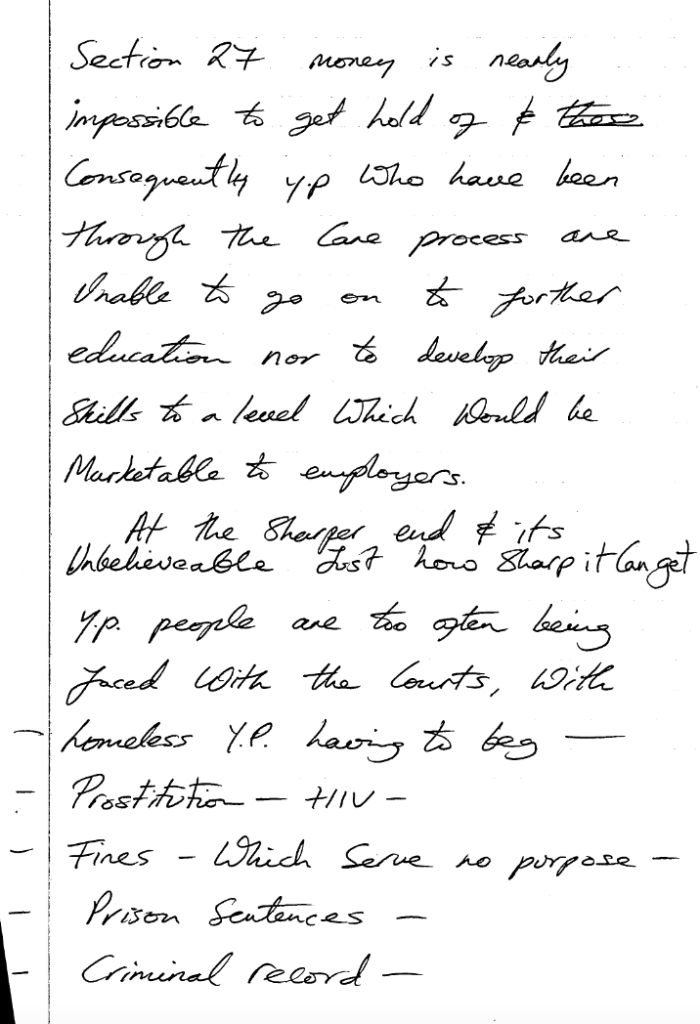 Section 27 money is nearly
impossible to get hold of & these
Consequently y.p who have been
through the Care process are
Unable to go on to further
education nor to develop their
Skills to a level Which Would be
Marketable to employers.
At the Sharper end & its
Unbelieveable Just how Sharp it Can get
Y.p. people are too often being
faced With the Courts, With
homeless Y.P. having to beg —
– Prostitution – HIV –
– Fines – Which Serve no purpose –
– Prison Sentences –
– Criminal record –